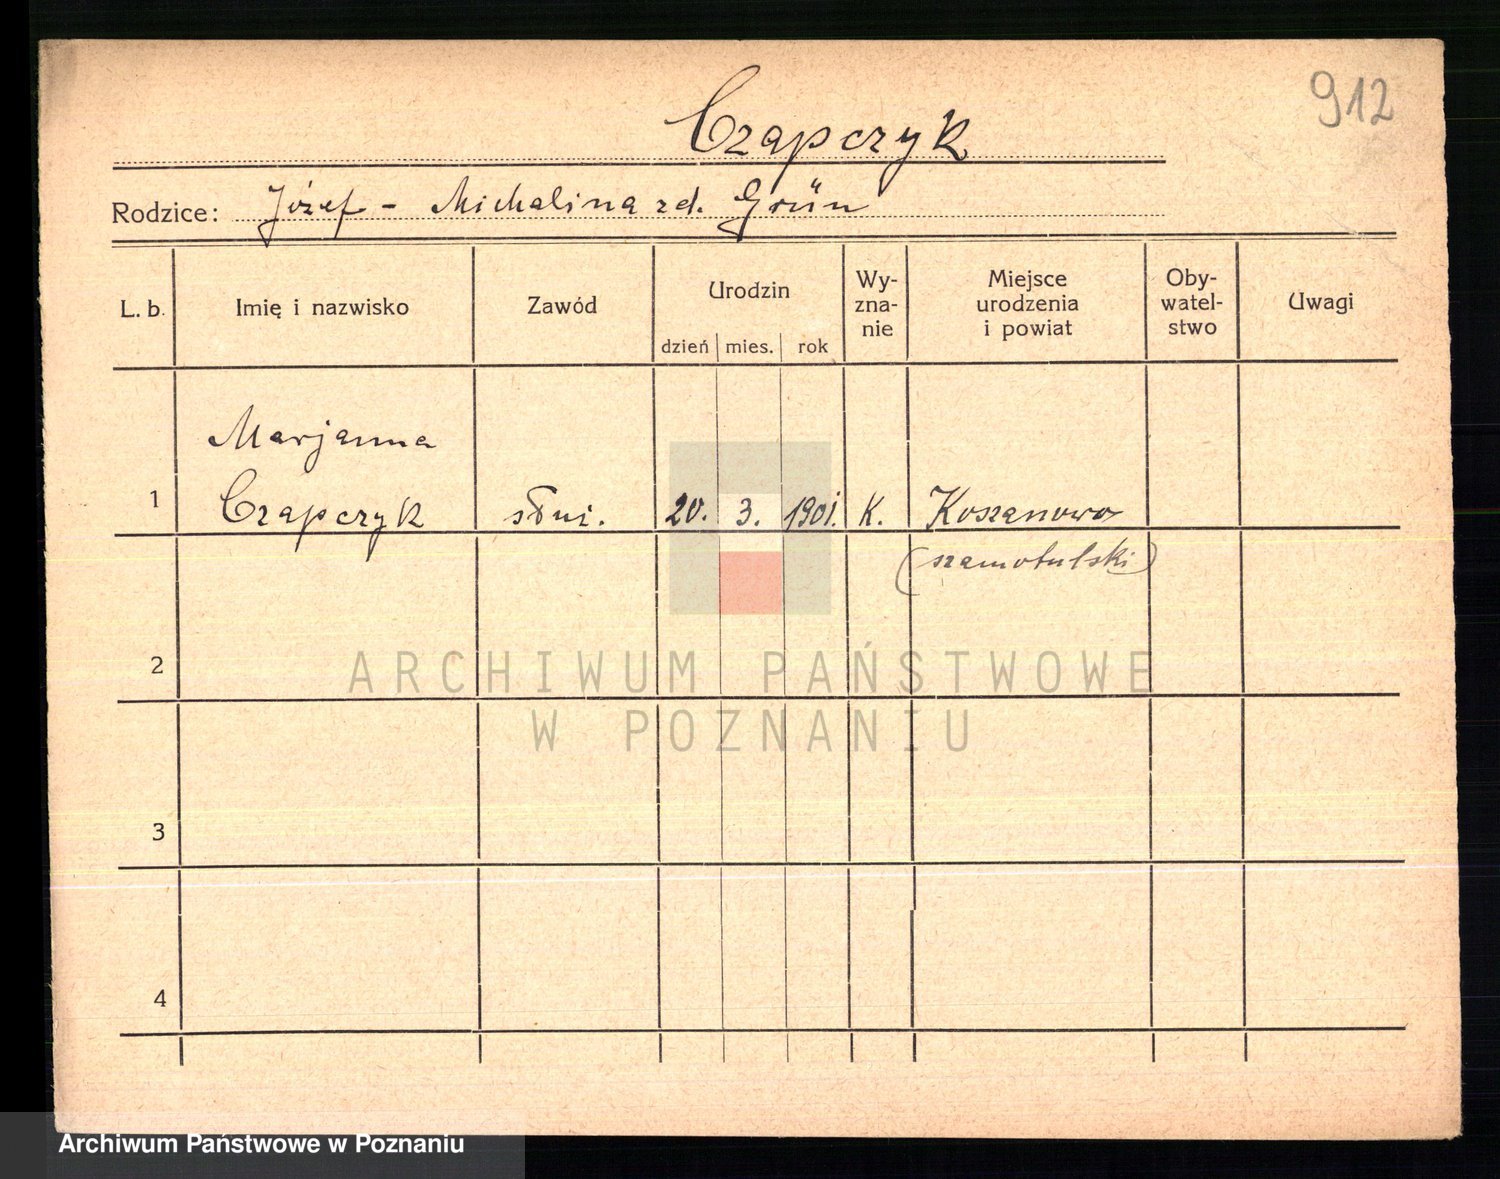 912
Czapczyk
Rodzice: Józef - Michalina zd. Grün
L. b.
Imię i nazwisko
Zawód
Urodzin
dzień
mies.
rok
Wy-
zna-
nie
Miejsce
urodzenia
i powiat
Oby-
watel-
stwo
Uwagi
Marjanna
1 Czapczyk służ. 20. 3. 1901. K. Koszanowo
(szamotulski)
2
ARCHIWUM PAŃSTWOWE
W POZNANIU
3
4
Archiwum Państwowe w Poznaniu